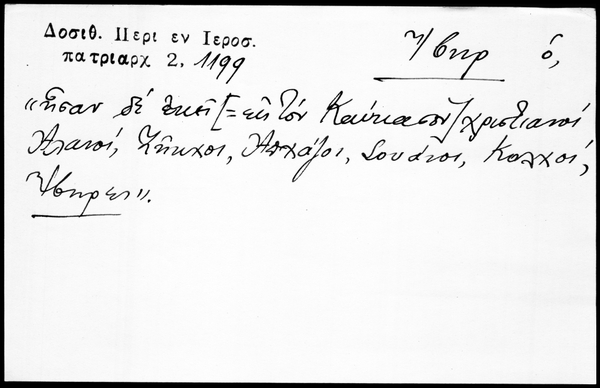 Δοσιθ. Περι εν Ιεροσ.
πατριαρχ 2, 1199
Ἴβηρ ὁ,
«ἦσαν δέ ἐκεῖ [= εἰς τόν Καύκασον] χριστιανοί
Ἀλανοί, Ζῆκχοι, Ἀπχάζοι, Σουάνοι, Κολχοί,
Ἴβηρες».